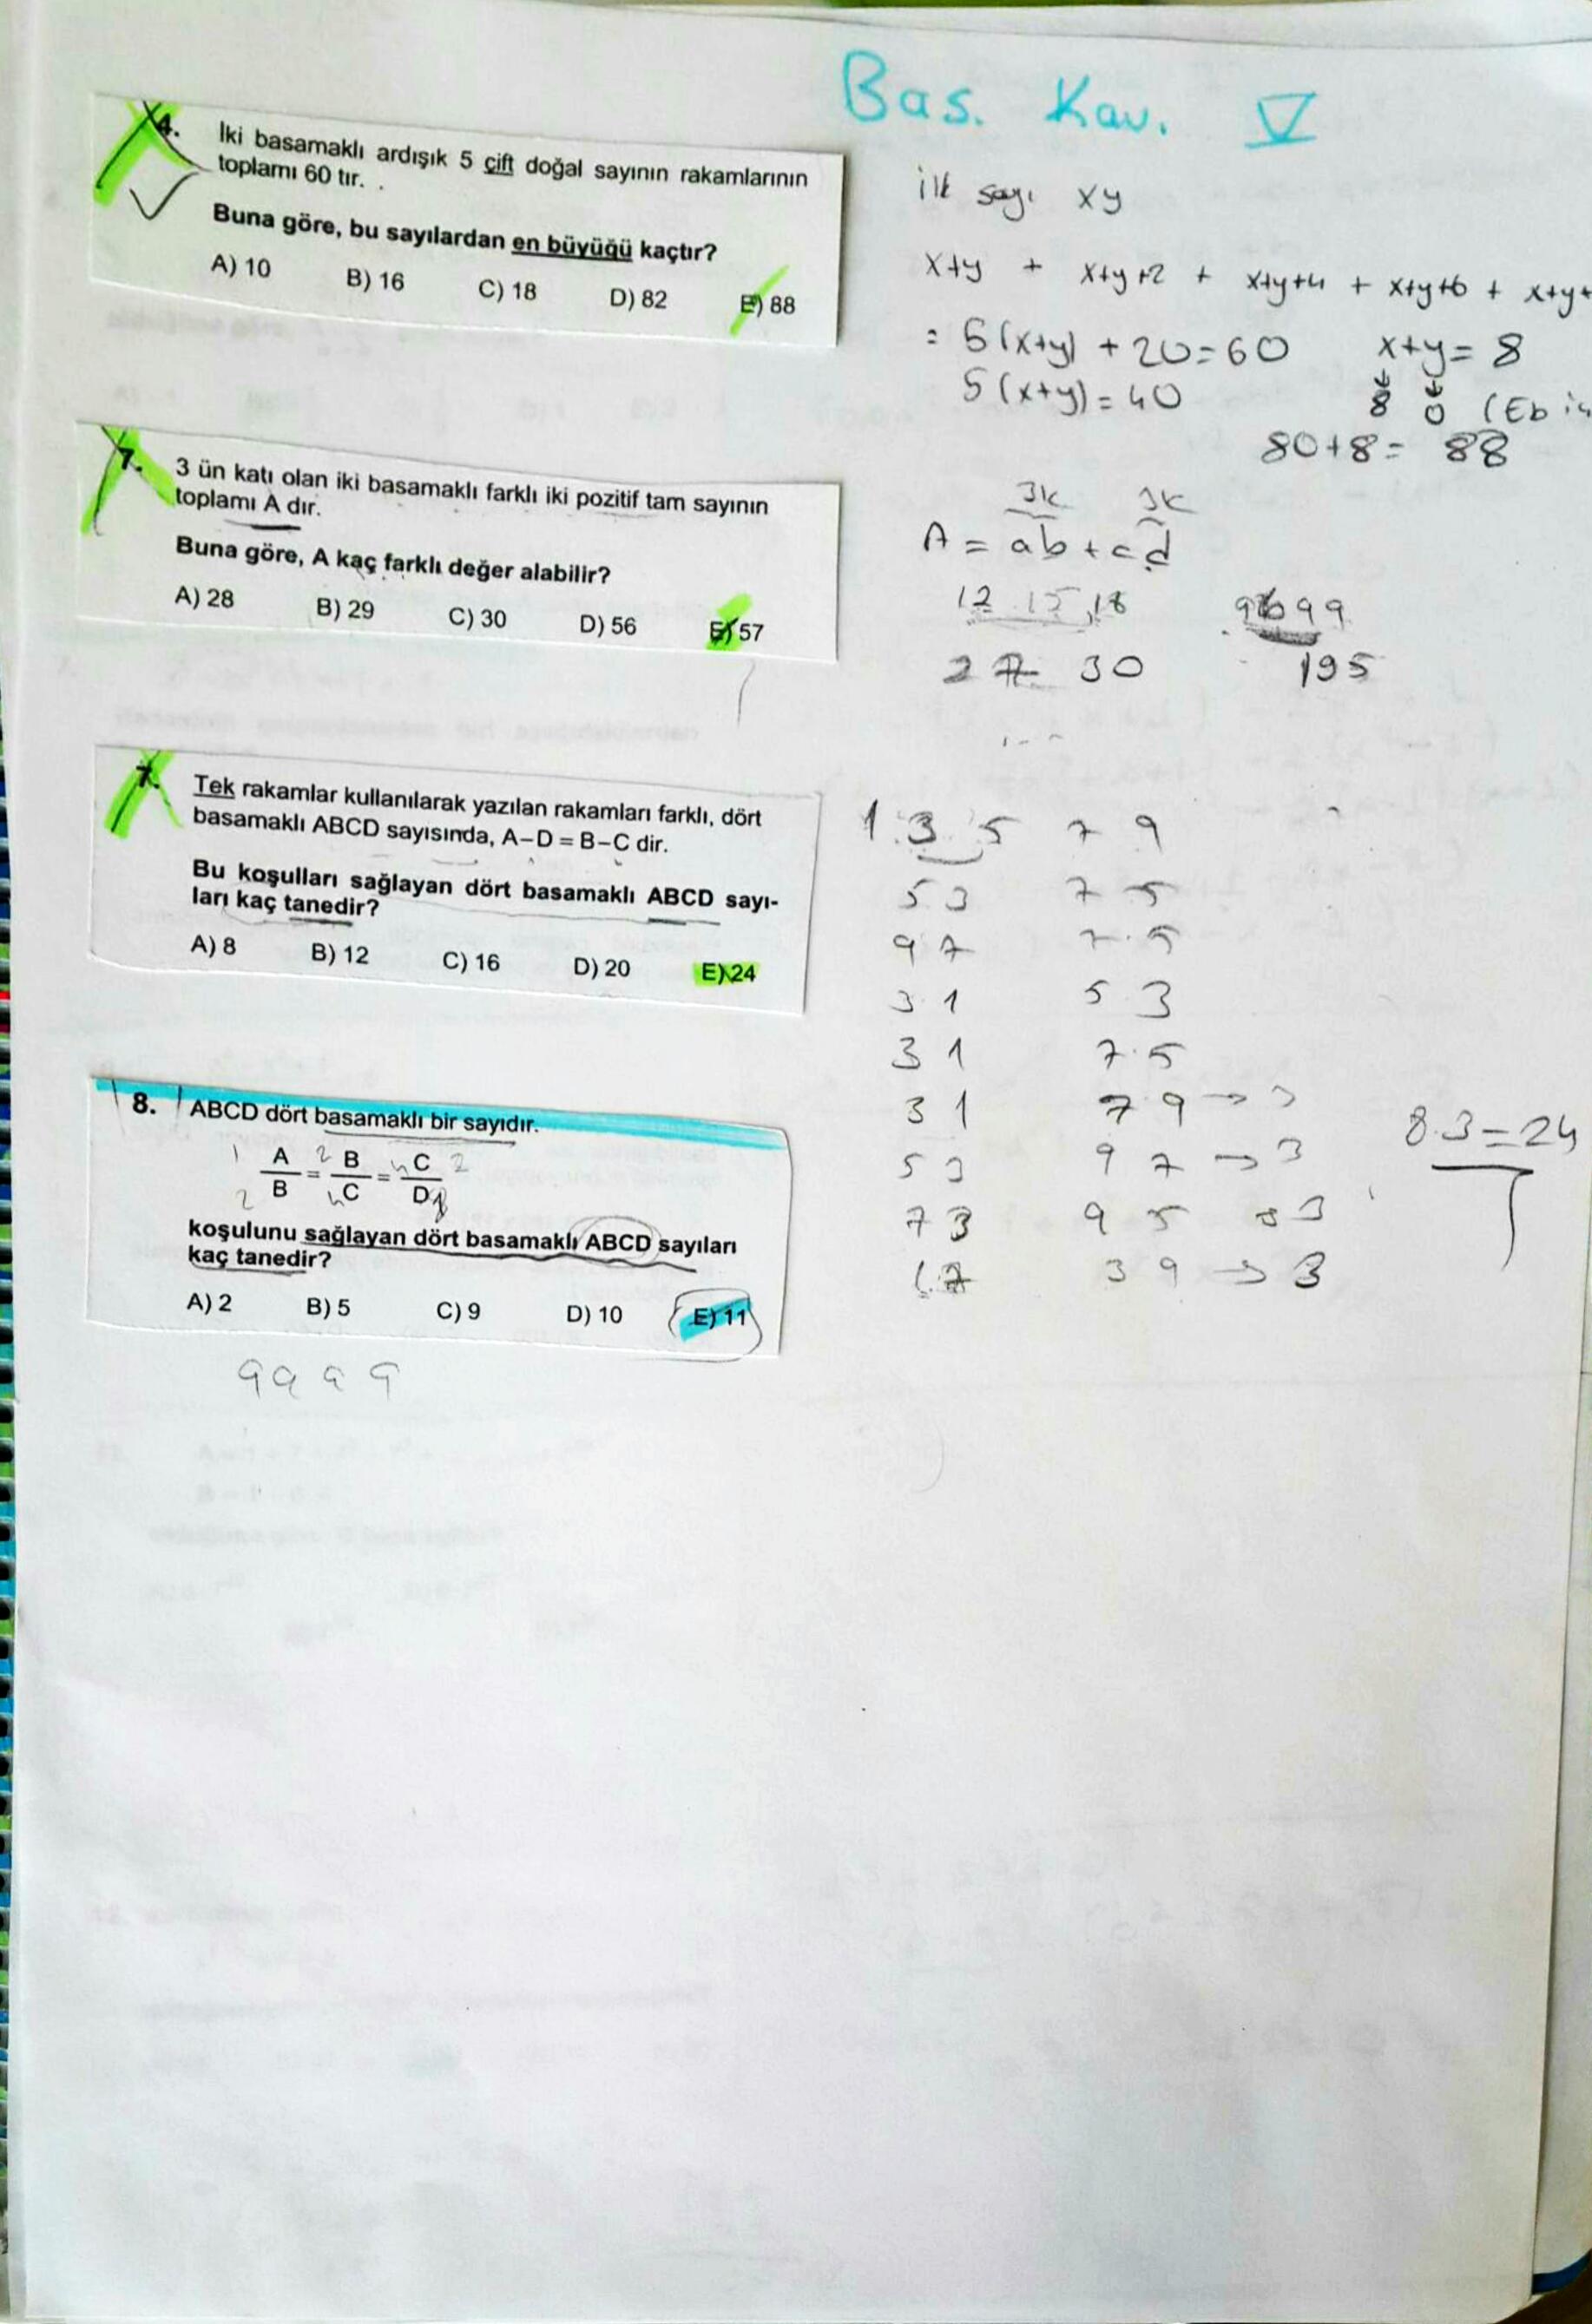 Bas. Kav. V
4. İki basamaklı ardışık 5 çift doğal sayının rakamlarının
toplamı 60 tır.
Buna göre, bu sayılardan en büyüğü kaçtır?
A) 10 B) 16 C) 18 D) 82 E) 88
ilk sayı xy
x+y + x+y+2 + x+y+4 + x+y+6 + x+y+
= 5(x+y) + 20=60 x+y= 8
5(x+y)=40 8 0 (Eb
80+8= 88
7. 3 ün katı olan iki basamaklı farklı iki pozitif tam sayının
toplamı A dır.
Buna göre, A kaç farklı değer alabilir?
A) 28 B) 29 C) 30 D) 56 E) 57
3k 3k
A = ab+cd
12 15,18 96 99
27 30 195
...
7. Tek rakamlar kullanılarak yazılan rakamları farklı, dört
basamaklı ABCD sayısında, A−D = B−C dir.
Bu koşulları sağlayan dört basamaklı ABCD sayı-
ları kaç tanedir?
A) 8 B) 12 C) 16 D) 20 E) 24
1 3 5 7 9
5 3 7 5
9 7 7.5
3 1 5 3
3 1 7.5
3 1 7 9 → 3
5 3 9 7 → 3
7 3 9 5 → 3
1 7 3 9 → 3
8.3=24
8. ABCD dört basamaklı bir sayıdır.
1 A 2 B 4 C 2
= =
2 B 4 C D 8
koşulunu sağlayan dört basamaklı ABCD sayıları
kaç tanedir?
A) 2 B) 5 C) 9 D) 10 E) 11
9 9 9 9